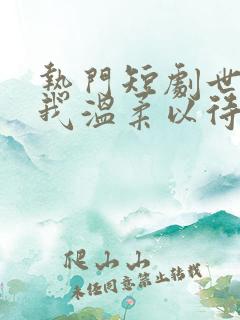 熱門短劇世
我溫柔以待
爬山山
未經同意禁止轉載